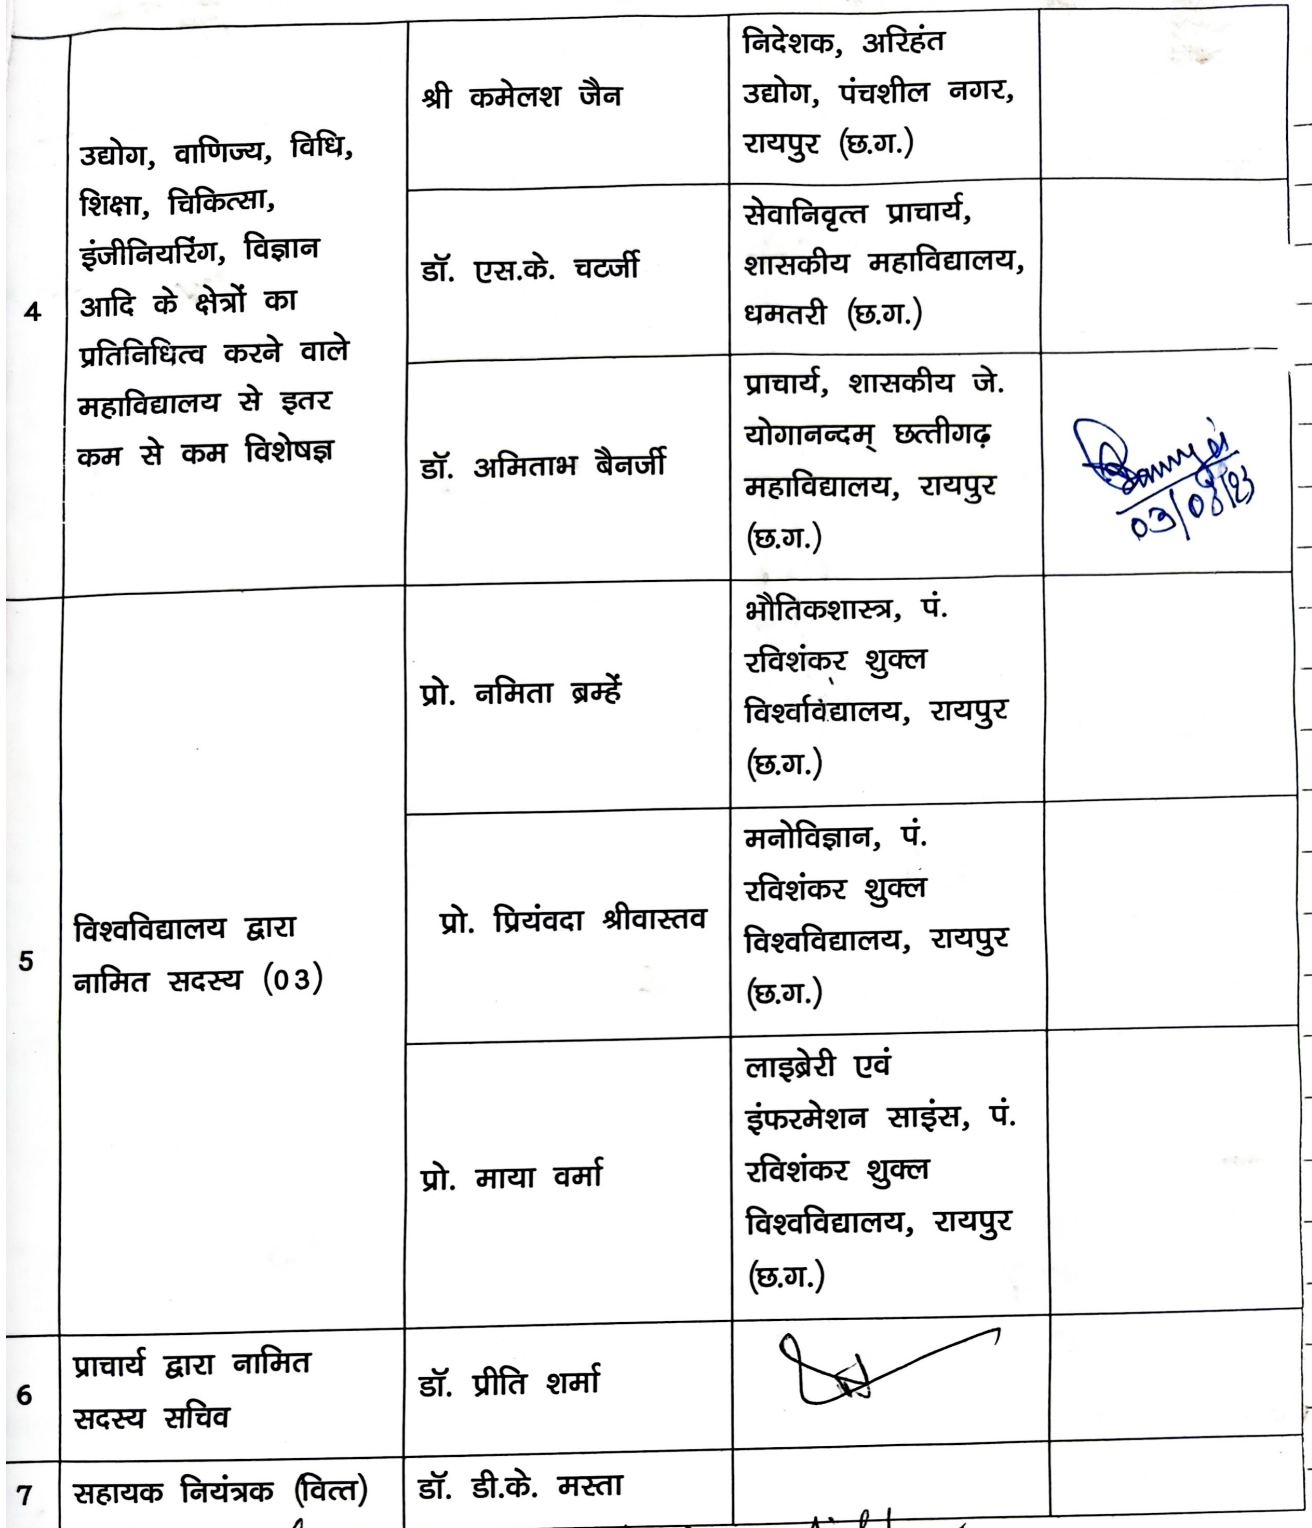 निदेशक, अरिहंत
श्री कमेलश जैन
उद्योग, पंचशील नगर,
रायपुर (छ.ग.)
4
उद्योग, वाणिज्य, विधि,
शिक्षा, चिकित्सा,
इंजीनियरिंग, विज्ञान
आदि के क्षेत्रों का
प्रतिनिधित्व करने वाले
महाविद्यालय से इतर
कम से कम विशेषज्ञ
डॉ. एस.के. चटर्जी
सेवानिवृत्त प्राचार्य,
शासकीय महाविद्यालय,
धमतरी (छ.ग.)
डॉ. अमिताभ बैनर्जी
प्राचार्य, शासकीय जे.
योगानन्दम् छत्तीगढ़
महाविद्यालय, रायपुर
(छ.ग.)
03/08/23
5
विश्वविद्यालय द्वारा
नामित सदस्य (03)
प्रो. नमिता ब्रम्हें
भौतिकशास्त्र, पं.
रविशंकर शुक्ल
विश्वविद्यालय, रायपुर
(छ.ग.)
प्रो. प्रियंवदा श्रीवास्तव
मनोविज्ञान, पं.
रविशंकर शुक्ल
विश्वविद्यालय, रायपुर
(छ.ग.)
प्रो. माया वर्मा
लाइब्रेरी एवं
इंफरमेशन साइंस, पं.
रविशंकर शुक्ल
विश्वविद्यालय, रायपुर
(छ.ग.)
6
प्राचार्य द्वारा नामित
सदस्य सचिव
डॉ. प्रीति शर्मा
7
सहायक नियंत्रक (वित्त)
डॉ. डी.के. मस्ता